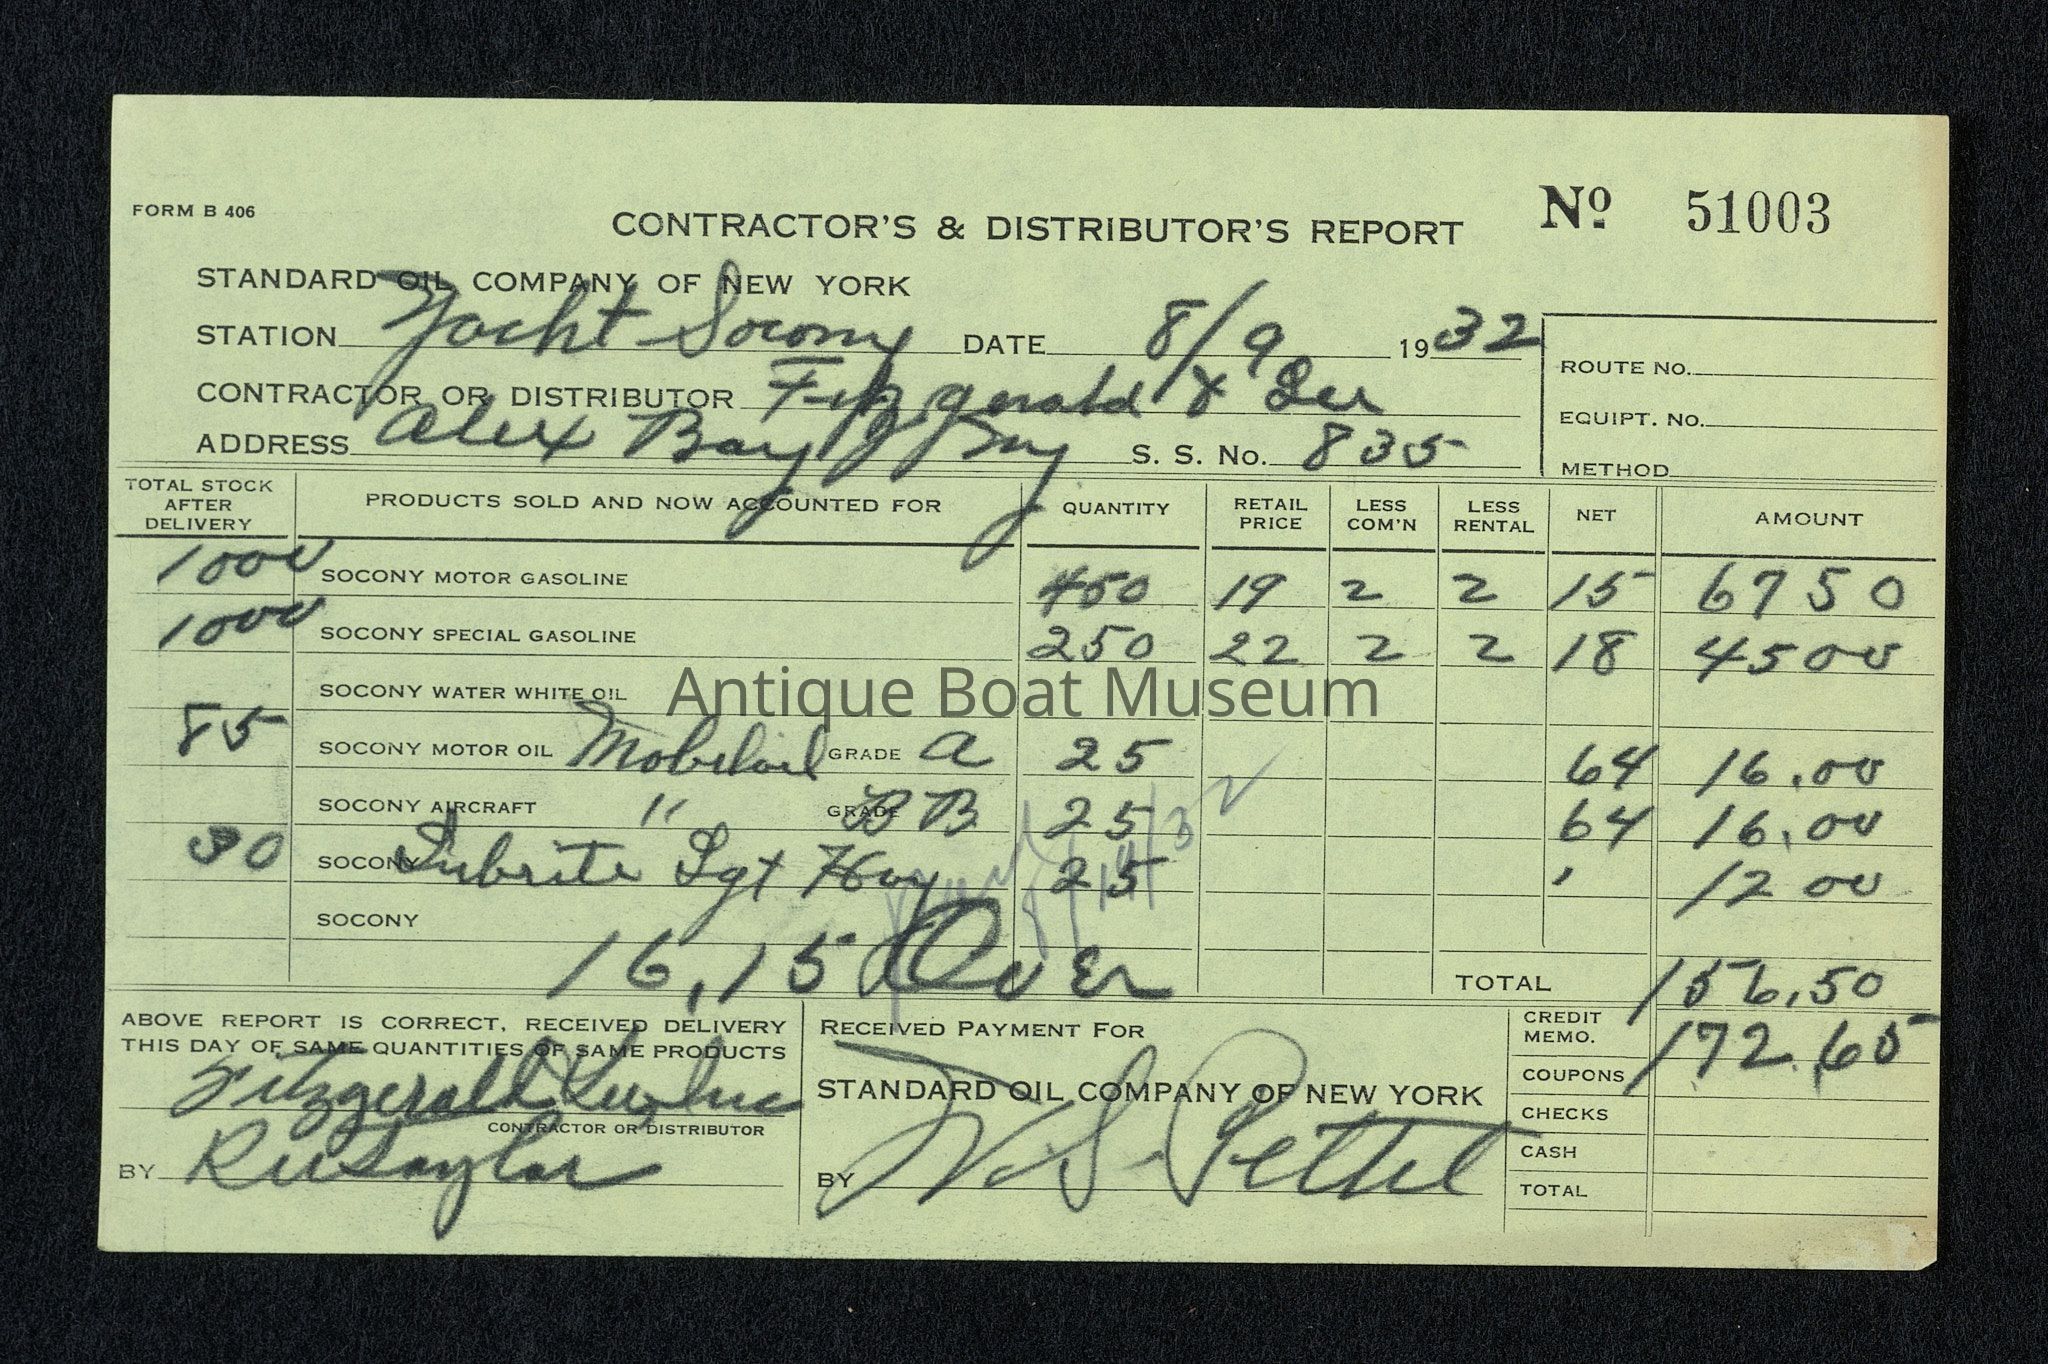 FORM B 406
CONTRACTOR'S & DISTRIBUTOR'S REPORT
Nº 51003
STANDARD OIL COMPANY OF NEW YORK
STATION Yacht Socony DATE 8/9 1932
ROUTE NO.
CONTRACTOR OR DISTRIBUTOR Fitzgerald & Lee
EQUIPT. NO.
ADDRESS Alex Bay NY S. S. NO. 835
METHOD
TOTAL STOCK AFTER DELIVERY PRODUCTS SOLD AND NOW ACCOUNTED FOR QUANTITY RETAIL PRICE LESS COM'N LESS RENTAL NET AMOUNT
1000 SOCONY MOTOR GASOLINE 450 19 2 2 15 67 50
1000 SOCONY SPECIAL GASOLINE 250 22 2 2 18 45 00
SOCONY WATER WHITE OIL
Antique Boat Museum
85 SOCONY MOTOR OIL Mobiloil GRADE A 25 64 16.00
SOCONY AIRCRAFT " GRADE BB 25 64 16.00
30 SOCONY Lubrite Lgt Hvy 25 12 00
SOCONY
16,15 Over
TOTAL 156.50
ABOVE REPORT IS CORRECT, RECEIVED DELIVERY
THIS DAY OF SAME QUANTITIES OF SAME PRODUCTS
Fitzgerald Lee Inc
CONTRACTOR OR DISTRIBUTOR
BY
RECEIVED PAYMENT FOR
STANDARD OIL COMPANY OF NEW YORK
BY
CREDIT MEMO. 172.65
COUPONS
CHECKS
CASH
TOTAL